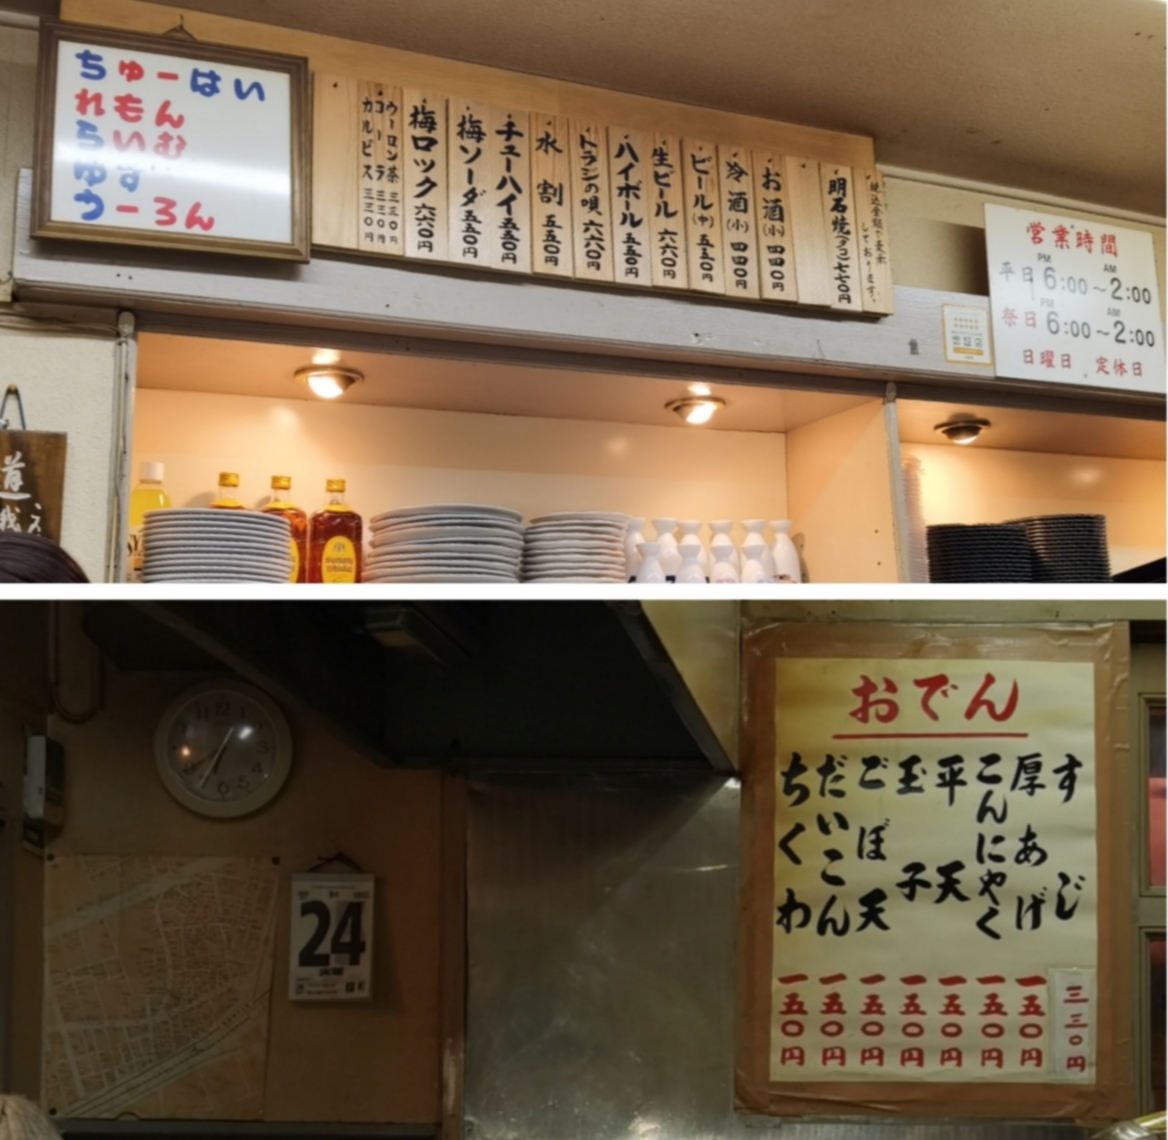 ちゅーはい
れもん
らいむ
ゆず
うーろん
税込金額で表示
しております。
明石焼(タコ)七七〇円
お酒(小)四四〇円
冷酒(小)四四〇円
ビール(中)五五〇円
生ビール六六〇円
ハイボール五五〇円
トラジの唄六六〇円
水割五五〇円
チューハイ五五〇円
梅ソーダ五五〇円
梅ロック六六〇円
ウーロン茶三三〇円
コーラ三三〇円
カルピス三三〇円
営業時間
平日PM6:00~AM2:00
祭日PM6:00~AM2:00
日曜日、定休日
道
我
おでん
すじ三三〇円
厚あげ一五〇円
こんにゃく一五〇円
平天一五〇円
玉子一五〇円
ごぼ天一五〇円
だいこん一五〇円
ちくわ一五〇円
24
火曜